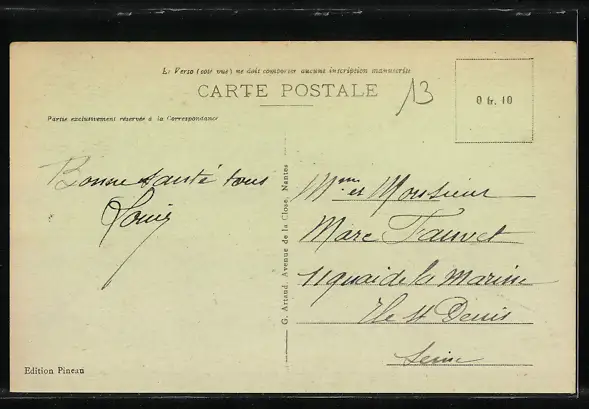 Le Verso (coté vue) ne doit comporter aucune inscription manuscrite
CARTE POSTALE
13
0 fr. 10
Partie exclusivement réservée à la Correspondance
Bonne santé tous
Louis
G. Artaud, Avenue de la Close, Nantes
Mme et Monsieur
Marc Fauvet
11 quai de la Marine
Ile St Denis
Seine
Edition Pineau